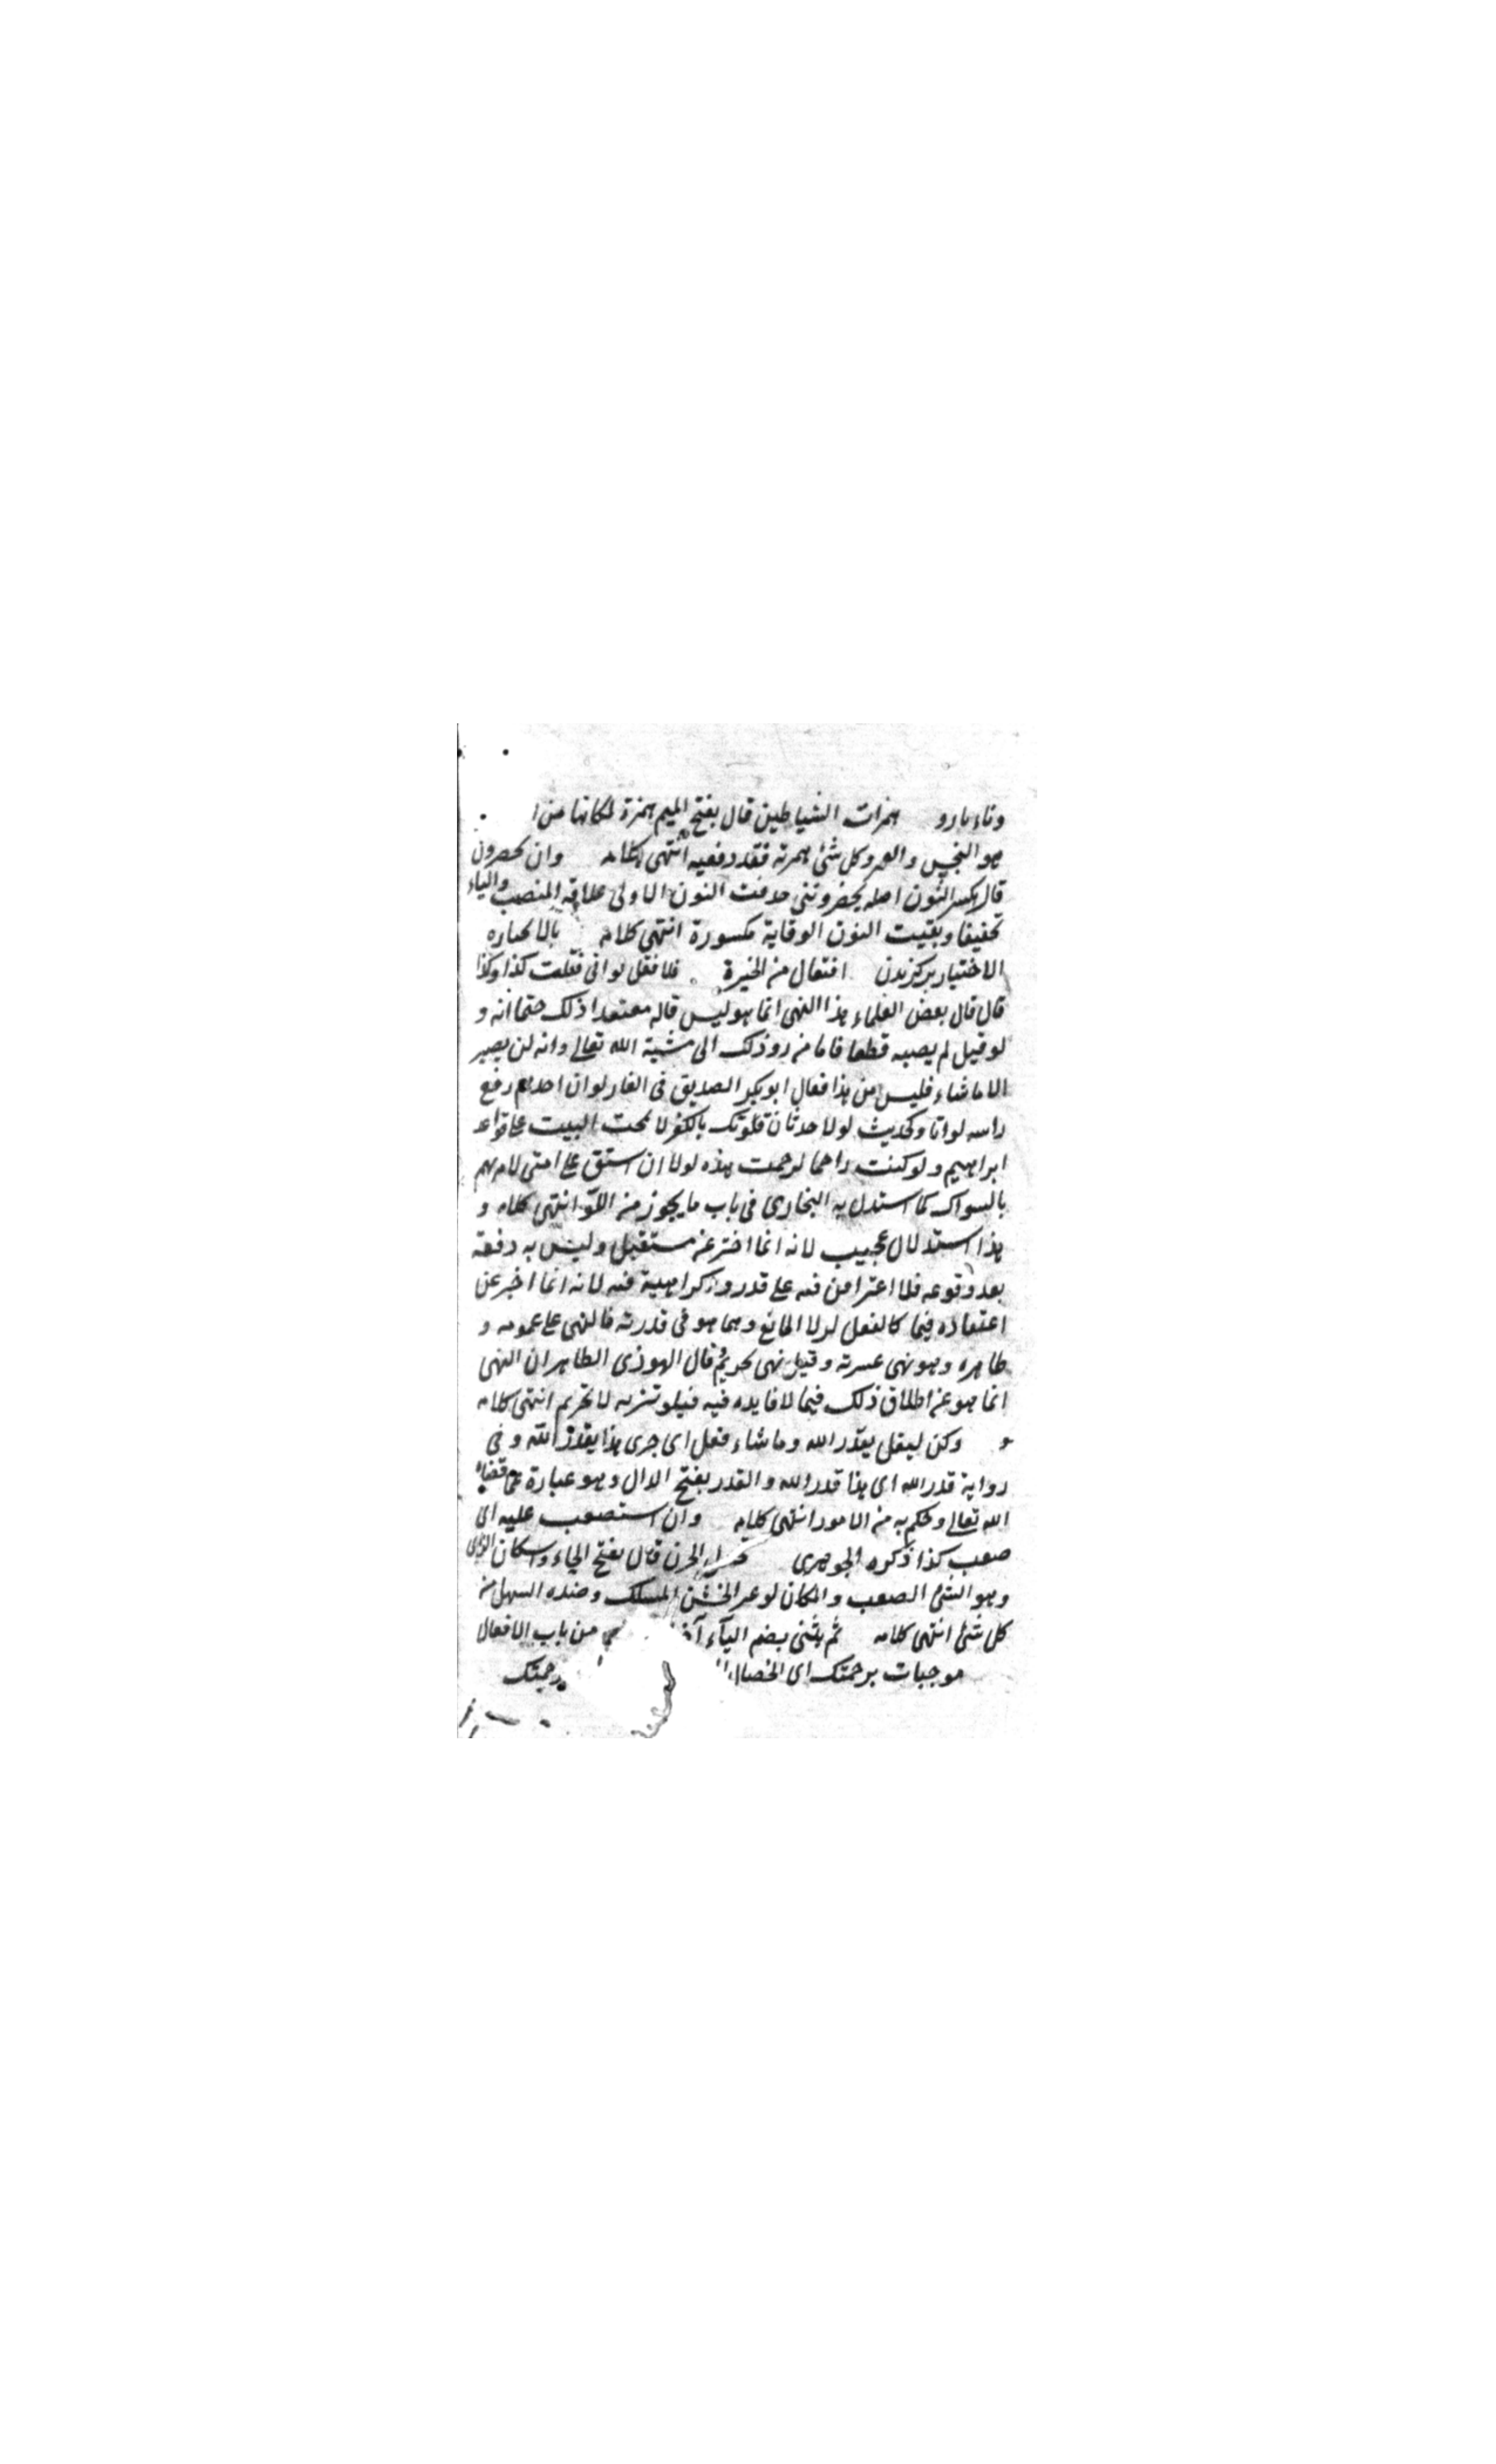 همزات الشياطين قال بفتح الميم همزة لمكانها من ا
هو النجس والعرو كل شئ همرته فقد دفعيه انتهى كلامه وان يحصرون
قال بكسر النون اصله يحضرونني حدفت النون الاولى علاقة المنصب والياء
تخفيفا وبقيت النون الوقاية مكسورة انتهى كلامه
الاختيار بركزيدن افتعال من الخيرة فلا فقل لو انى فعلت كذا وكذا
قال قال بعض العلماء هذا النهى انما هو ليس قاله معتمدا ذلك حتما انه و
لو قيل لم يصبه قطعا فاما من رد ذلك الى مشية الله تعالى وانه لن يصير
الا ما شاء فليس من هذا فعال ابو بكر الصديق فى الغار لو ان احدهم رفع
راسه لوانا وكحديث لولا حدثان قلوتك بالكفر لا نمحت البيت على قواعد
ابراهيم ولو كنت راحما لرحمت هذه لولا ان استق على امتى لامرهم
بالسواك كما استدل به البخارى فى باب ما يجوز من اللو انتهى كلامه و
هذا استدلال عجيب لانه انما اخبر عن مستقبل وليس به دفعة
بعد وقوعه فلا اعتراض فيه على قدر ولا كراهية فيه لانه انما اخبر عن
اعتقاده فيما كالفعل لولا المانع وهما هو فى قدرته فالنهى على عمومه و
ظاهره وهو نهى عسرته وقيل نهى تحريم قال الهوذى الظاهر ان النهى
انما هو عن اطلاق ذلك فيما لا فايده فيه فيلو تنزيه لا تحريم انتهى كلامه
و وكن ليقل يقدر الله وما شاء فعل اى جرى هذا بقدر الله و فى
رواية قدر الله اى هذا قدر الله والقدر بفتح الدال وهو عبارة عما قضاه
الله تعالى وحكم به من الامور انتهى كلامه وان استصعب عليه اى
صعب كذا ذكره الجوهرى الحزن قال بفتح الحاء واسكان الزاى
وهو الشئ الصعب والمكان لوعر الخشن المسلك وضده السهل من
كل شئ انتهى كلامه ثم يثنى بضم الياء من باب الافعال
موجبات برحمتك اى الخصال رحمتك